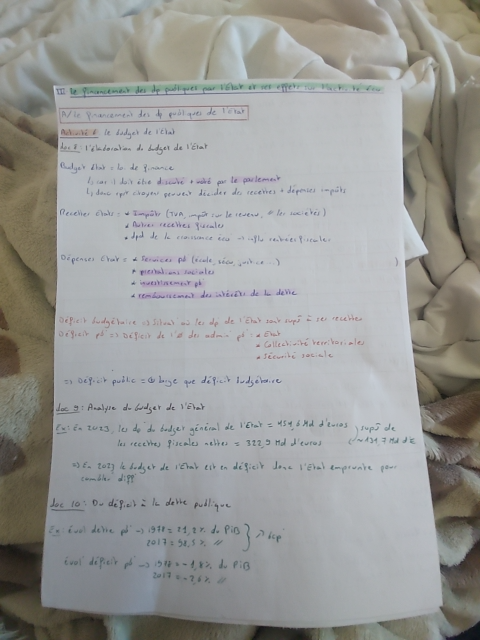 III Le financement des dp publiques par l'État et ses effets sur
A/ Le financement des dp publiques de l'état
Activité 4 : le budget de l'État
doc 8 : l'élaboration du budget de l'État
Budget État = loi de finance
↳ car il doit être discuté + voté par le parlement
↳ donc rpst citoyens peuvent décider des recettes + dépenses impôts
Recettes États = • Impôts (TVA, impôt sur le revenu, les sociétés)
• Autres recettes fiscales
• dpd de la croissance éco ⇒ influ recettes fiscales
Dépenses État = • Services pb (école, sécu, justice ...)
• prestations sociales
• investissement pb
• remboursement des intérêts de la dette
Déficit budgétaire ⇒ Situat. où les dp de l'État sont supé à ses recettes
Déficit pb ⇒ Déficit de l' des admin pb • État
• Collectivité territoriales
• Sécurité sociale
⇒ Déficit public = large que déficit budgétaire
doc 9 : Analyse du budget de l'État
Ex : En 2023, les dp du budget général de l'État = Md d'euros } supé de
les recettes fiscales nettes = 322,9 Md d'euros
⇒ En 2023 le budget de l'État est en déficit donc l'État emprunte pour
combler diff
doc 10 : Du déficit à la dette publique
Ex : évol dette pb → 1978 = 21,2% du PIB
2017 = 98,5% //
évol déficit pb → 1978 = -1,8% du PIB
2017 = //